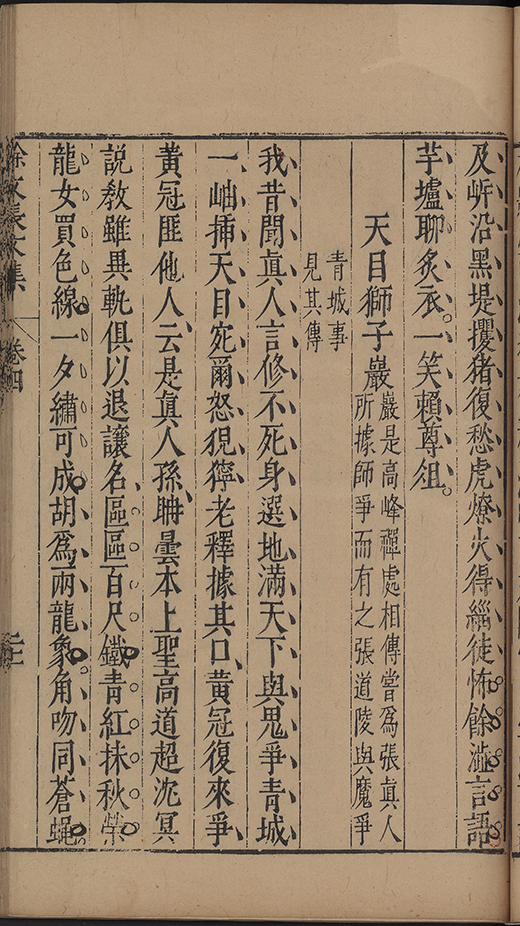 及岓沿黑堤攫猪復愁虎燎火得緇徒怖餘澁言語
芋爐聊炙衣一笑賴尊俎
天目獅子巖
巖是高峰禪處相傳嘗爲張眞人
所據師爭而有之張道陵與魔爭
青城事
見其傳
我昔聞眞人言修不死身選地滿天下與鬼爭青城
一岫揷天目宛爾怒猊獰老釋據其口黄冠復來爭
黄冠匪他人云是眞人孫聃曇本上聖高道超沉冥
說教雖異軌俱以退讓名區區百尺鐵青紅抹秋
龍女買色線一夕繡可成胡爲兩龍象角吻同蒼蝇
徐文長文集
卷四